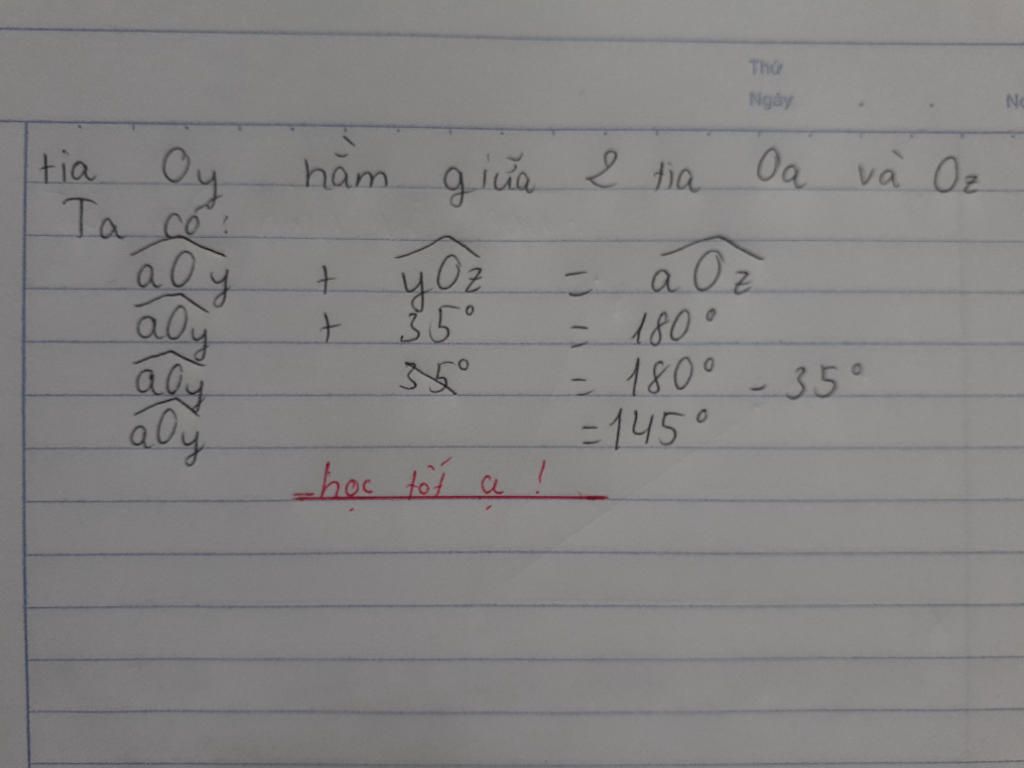 Thứ
Ngày . .
tia Oy nằm giữa 2 tia Oa và Oz
Ta có:
aOy + yOz = aOz
aOy + 35° = 180°
aOy 35° = 180° - 35°
aOy = 145°
học tốt ạ !